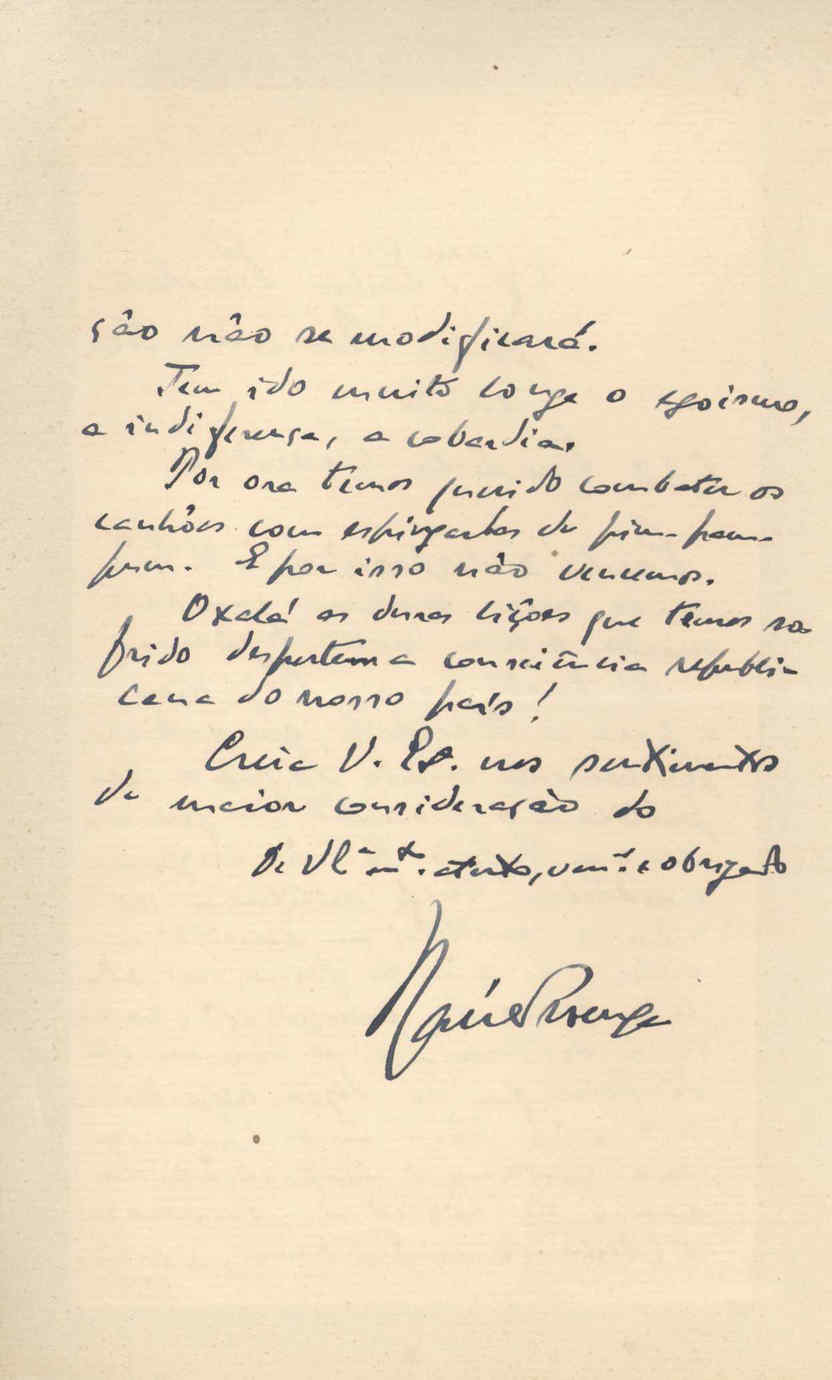 ção não se modificará.
Tem ido muito longe o egoismo,
a indiferença, a cobardia.
Por ora temos querido combater os
canhões com espingardas de pim-pam-
pum. E por isso não vencemos.
Oxalá as duras lições que temos so
frido despertem a consciência republi-
cana do nosso país!
Creia V. Ex. nos sentimentos
da maior consideração do
De V. Ex.ª m.to atento, ven.or e obrigado